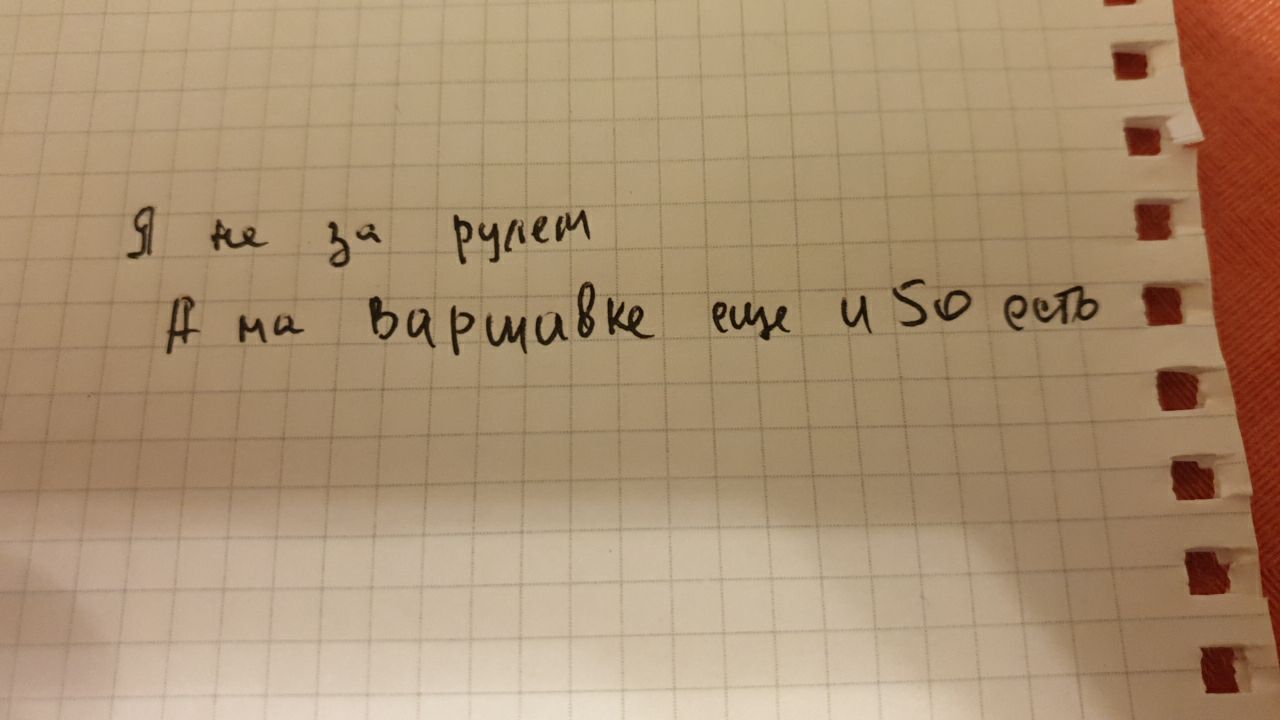 Я не за рулем
А на Варшавке еще и 50 есть